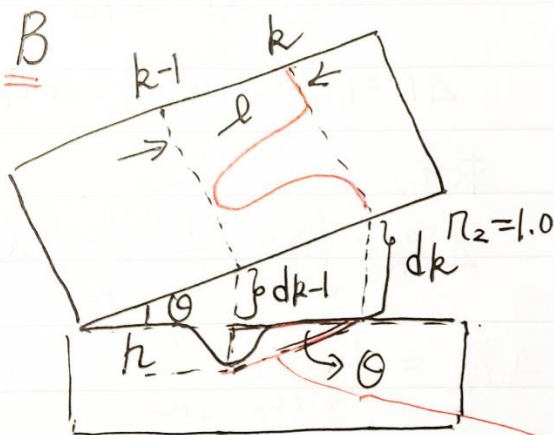 B
k-1
k
l
n₂=1.0
dk
dk-1
θ
h
θ